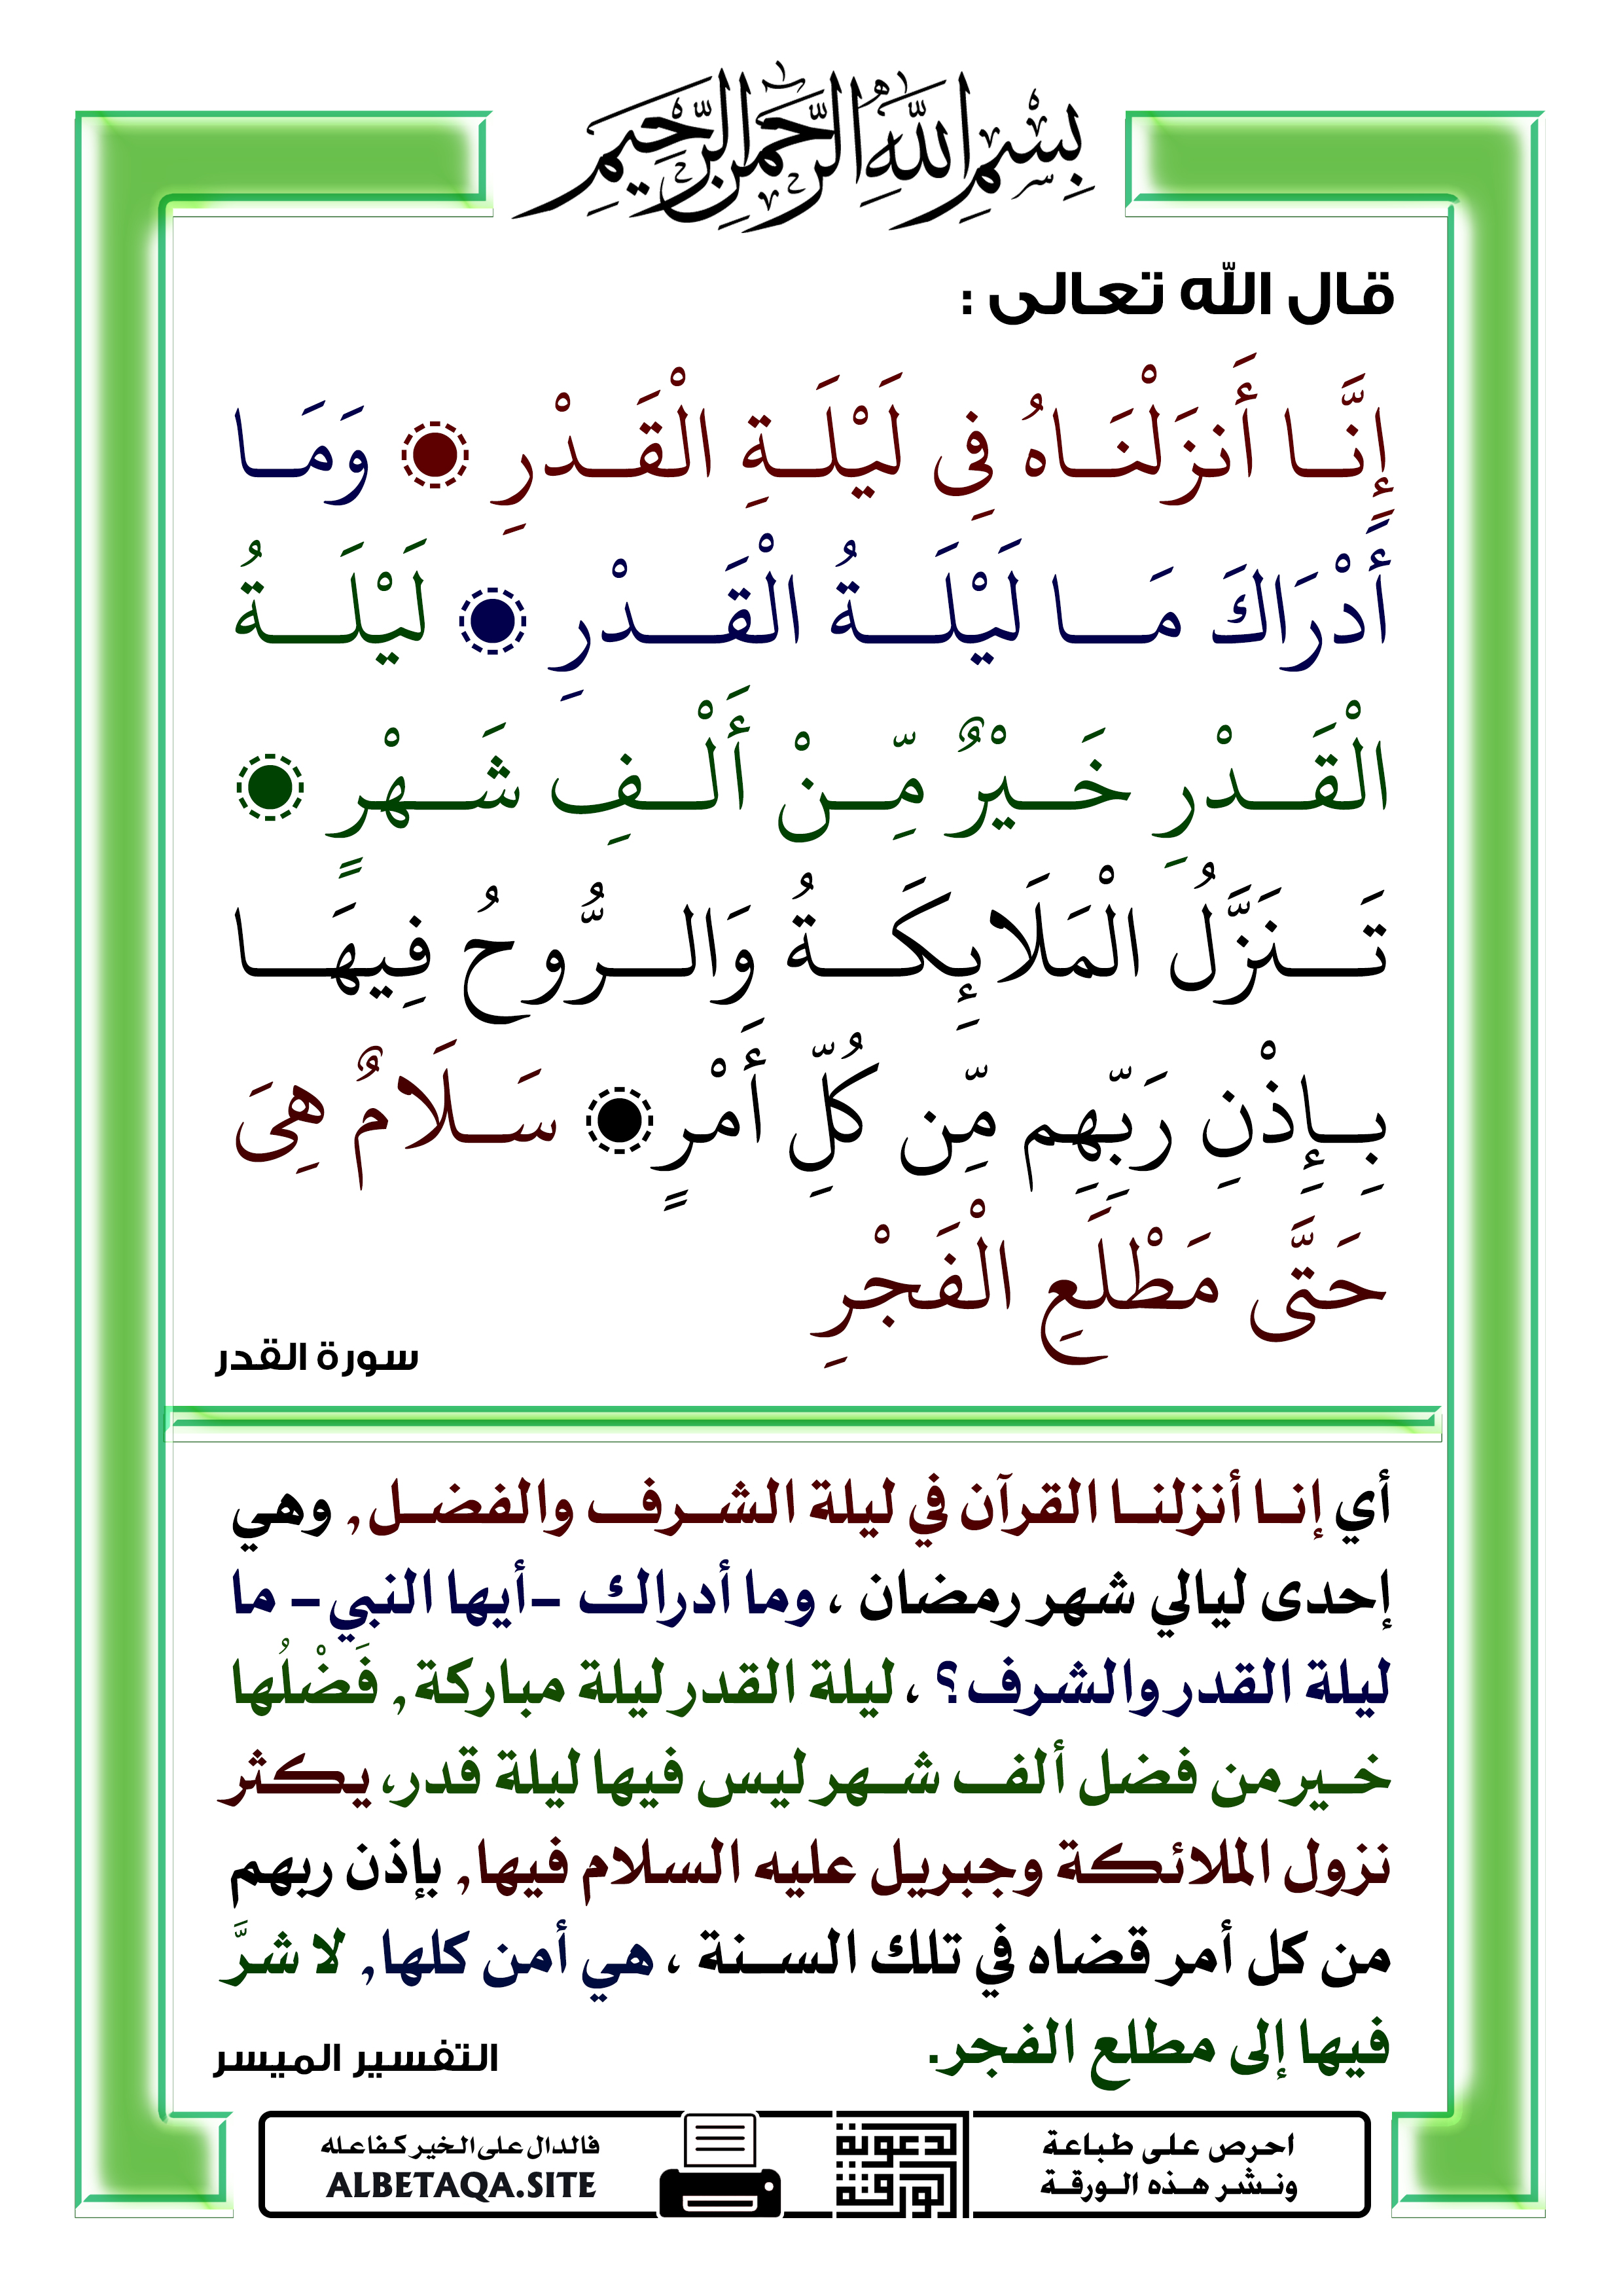 بِسْمِ اللَّهِ الرَّحْمَٰنِ الرَّحِيمِ
قال الله تعالى :
إِنَّا أَنزَلْنَاهُ فِى لَيْلَةِ الْقَدْرِ ۝ وَمَا
أَدْرَاكَ مَا لَيْلَةُ الْقَدْرِ ۝ لَيْلَةُ
الْقَدْرِ خَيْرٌ مِّنْ أَلْفِ شَهْرٍ ۝
تَنَزَّلُ الْمَلَائِكَةُ وَالرُّوحُ فِيهَا
بِإِذْنِ رَبِّهِم مِّن كُلِّ أَمْرٍ ۝ سَلَامٌ هِىَ
حَتَّى مَطْلَعِ الْفَجْرِ
سورة القدر
أي إنا أنزلنا القرآن في ليلة الشرف والفضل, وهي
إحدى ليالي شهر رمضان ، وما أدراك -أيها النبي- ما
ليلة القدر والشرف؟ ، ليلة القدر ليلة مباركة, فَضْلُها
خير من فضل ألف شهر ليس فيها ليلة قدر، يكثر
نزول الملائكة وجبريل عليه السلام فيها, بإذن ربهم
من كل أمر قضاه في تلك السنة ، هي أمن كلها, لا شرَّ
فيها إلى مطلع الفجر.
التفسير الميسر
احرص على طباعة
ونشر هذه الورقة
الورقة
الدعوية
فالدال على الخير كفاعله
ALBETAQA.SITE